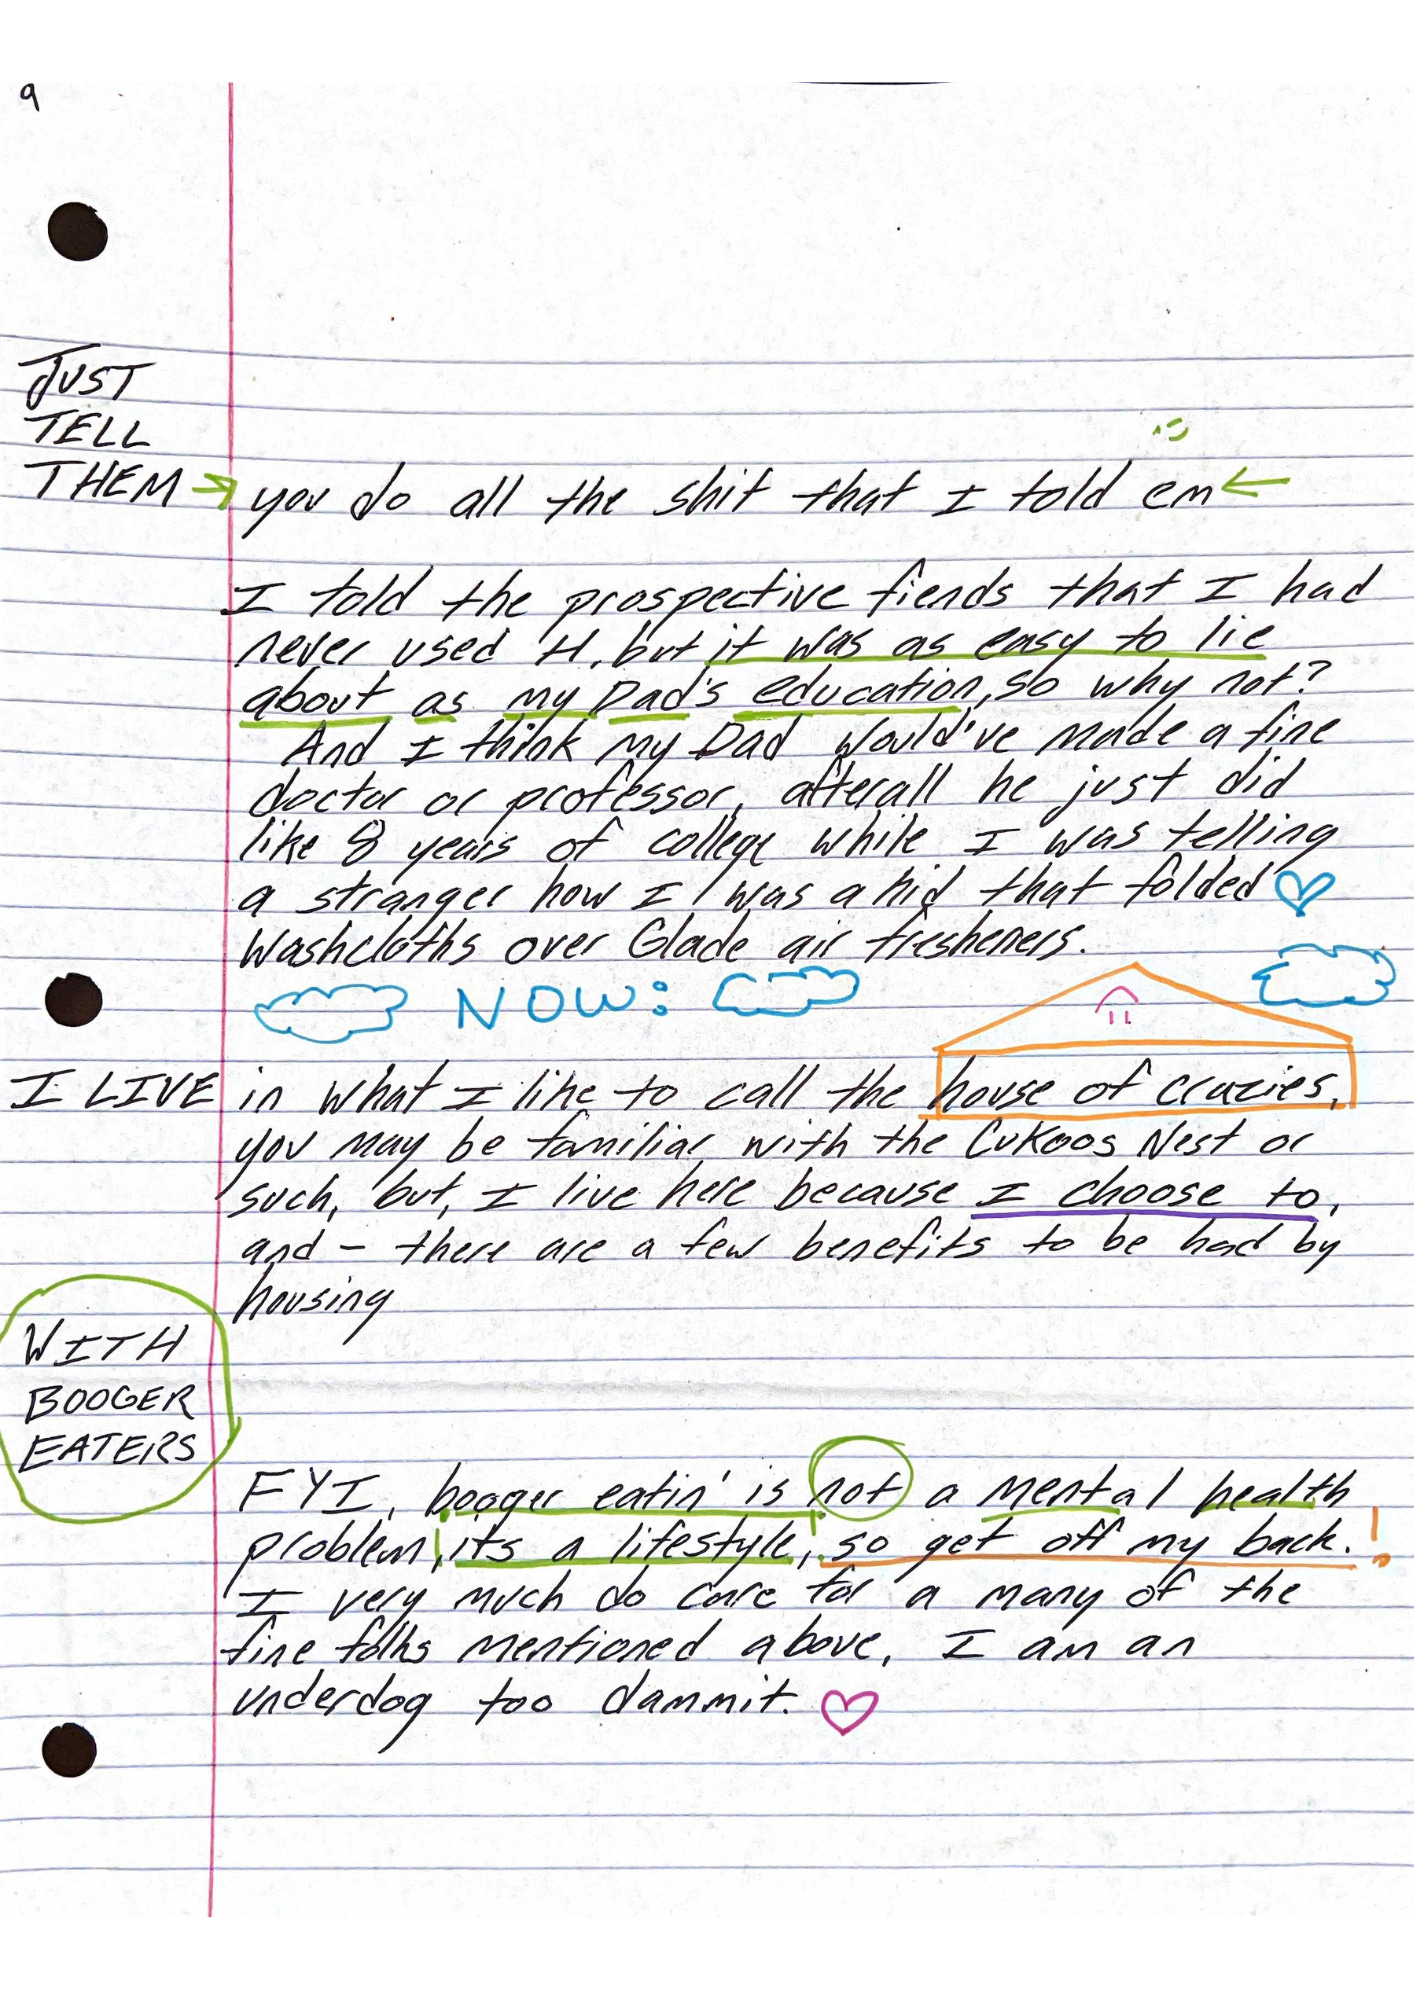 9
JUST
TELL
THEM → you do all the shit that I told em ←
I told the prospective fiends that I had
never used H, but it was as easy to lie
about as my Dad's education, so why not?
And I think my Dad would've made a fine
doctor or professor, afterall he just did
like 8 years of college while I was telling
a stranger how I was a kid that folded
washcloths over Glade air fresheners.
NOW:
I LIVE in what I like to call the house of crazies,
you may be familiar with the Cukoos Nest or
such, but, I live here because I choose to,
and - there are a few benefits to be had by
housing
WITH
BOOGER
EATERS
FYI, booger eatin' is not a mental health
problem, its a lifestyle, so get off my back.!
I very much do care for a many of the
fine folks mentioned above, I am an
underdog too dammit.